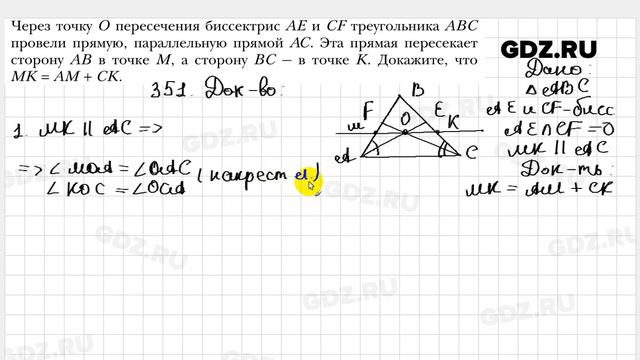 Через точку O пересечения биссектрис AE и CF треугольника ABC
провели прямую, параллельную прямой AC. Эта прямая пересекает
сторону AB в точке M, а сторону BC — в точке K. Докажите, что
MK = AM + CK.
GDZ.RU
351. Док-во:
Дано:
△ ABC
AE и CF-бисс.
AE ∩ CF = O
MK || AC
Док-ть:
MK = AM + CK
B
F
E
M
O
K
A
C
1. MK || AC =>
=> ∠ MOA = ∠OAC
∠ KOC = ∠OCA
( накрест л.)
GDZ.RU
GDZ.RU
GDZ.RU
GDZ.RU
GDZ.RU
GDZ.RU